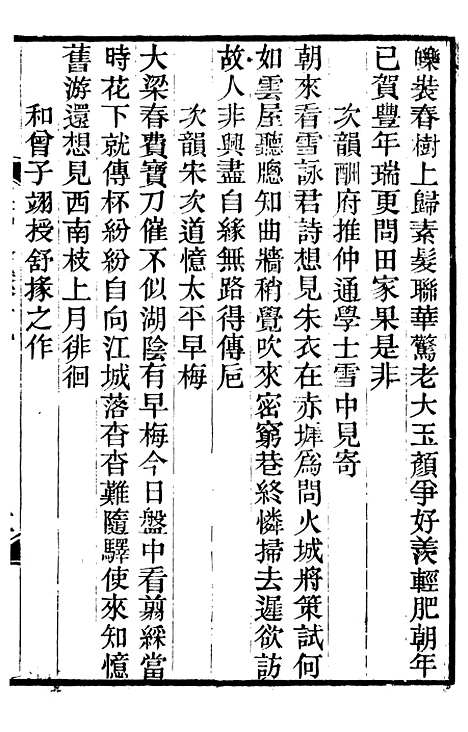 皪裝春樹上歸素髮聯華驚老大玉顏爭好羨輕肥朝年
已賀豐年瑞更問田家果是非
次韻酬府推仲通學士雪中見寄
朝來看雪詠君詩想見朱衣在赤墀爲問火城將策試何
如雲屋聽牕知曲牆稍覺吹來密窮巷終憐掃去遲欲訪
故人非興盡自緣無路得傳卮
次韻宋次道憶太平早梅
大梁春費寶刀催不似湖陰有早梅今日盤中看剪綵當
時花下就傳杯紛紛自向江城落杳杳難隨驛使來知憶
舊游還想見西南枝上月徘徊
和曾子翊授舒掾之作